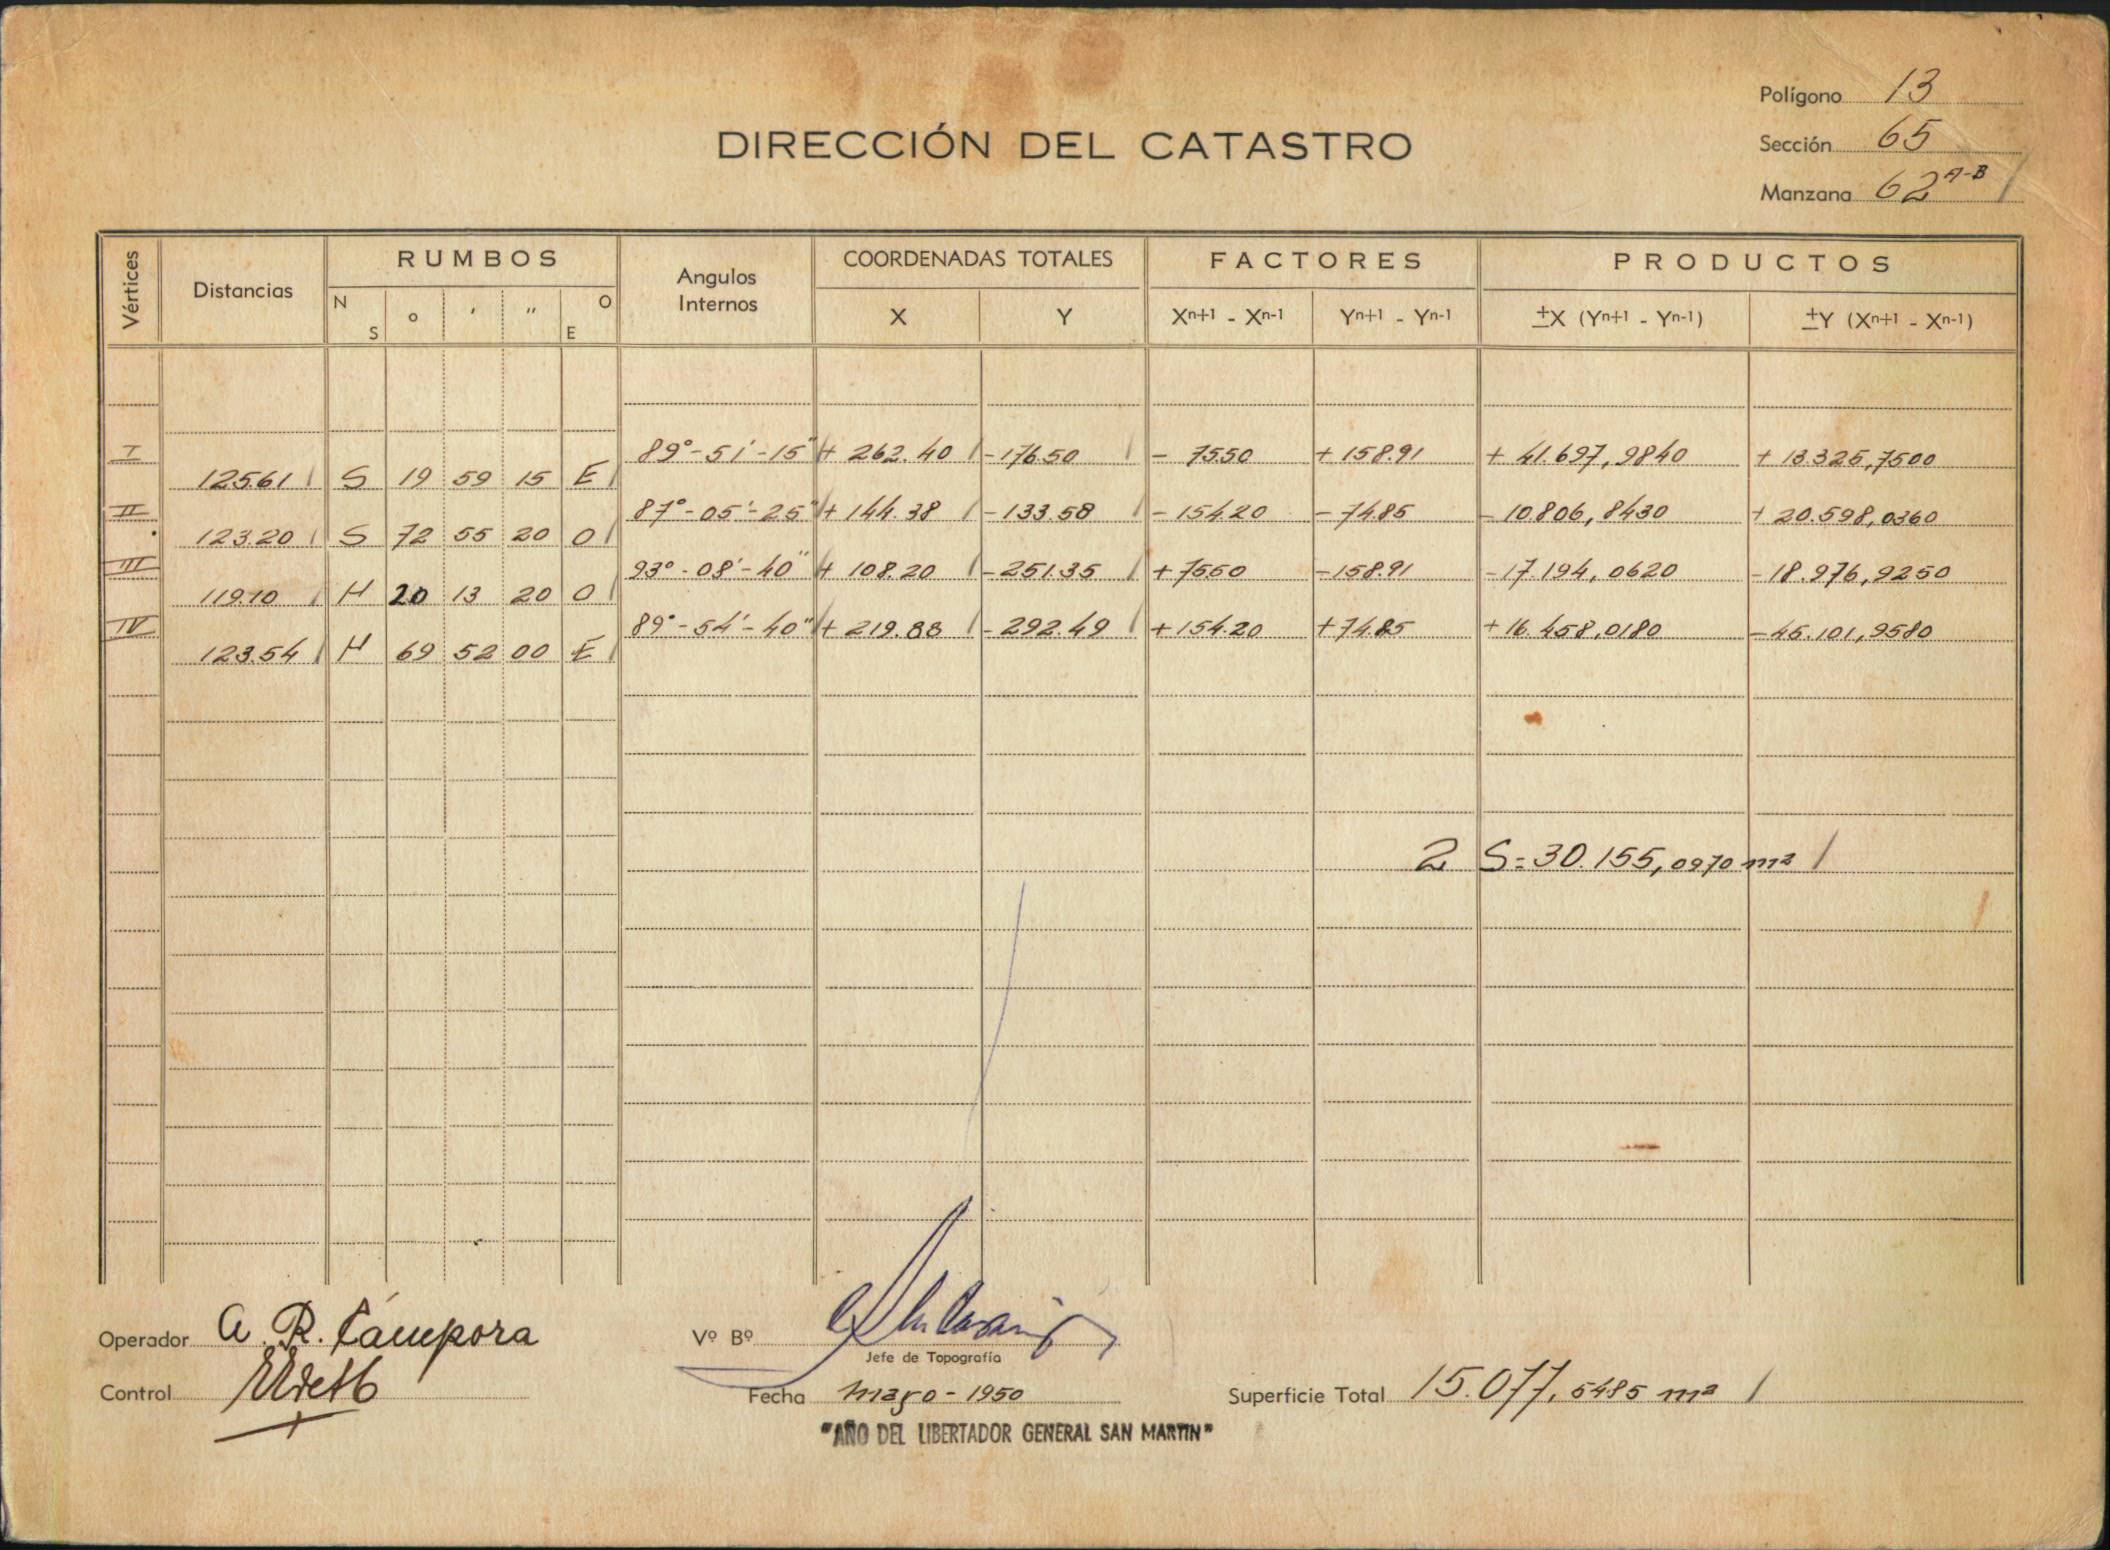 Polígono 13
DIRECCIÓN DEL CATASTRO
Sección 65
Manzana 62 A-B
Vértices Distancias RUMBOS Angulos Internos COORDENADAS TOTALES FACTORES PRODUCTOS
N S ° ' " O E X Y Xn+1 - Xn-1 Yn+1 - Yn-1 ±X (Yn+1 - Yn-1) ±Y (Xn+1 - Xn-1)
I 89°-51'-15" + 262.40 -176.50 - 75.50 +158.91 + 41.697,9840 + 13.325,7500
125.61 S 19 59 15 E
II 87°-05'-25" + 144.38 -133.58 -154.20 -74.85 -10.806,8430 + 20.598,0360
123.20 S 72 55 20 O
III 93°-08'-40" + 108.20 -251.35 +75.50 -158.91 -17.194,0620 -18.976,9250
119.10 N 20 13 20 O
IV 89°-54'-40" + 219.88 -292.49 +154.20 +74.85 +16.458,0180 -45.101,9580
123.54 N 69 52 00 E
2 S=30.155,0970 m²
Operador A. R. Cámpora
Vº Bº
Jefe de Topografía
Control
Fecha marzo - 1950
Superficie Total 15.077,5485 m²
"AÑO DEL LIBERTADOR GENERAL SAN MARTIN"